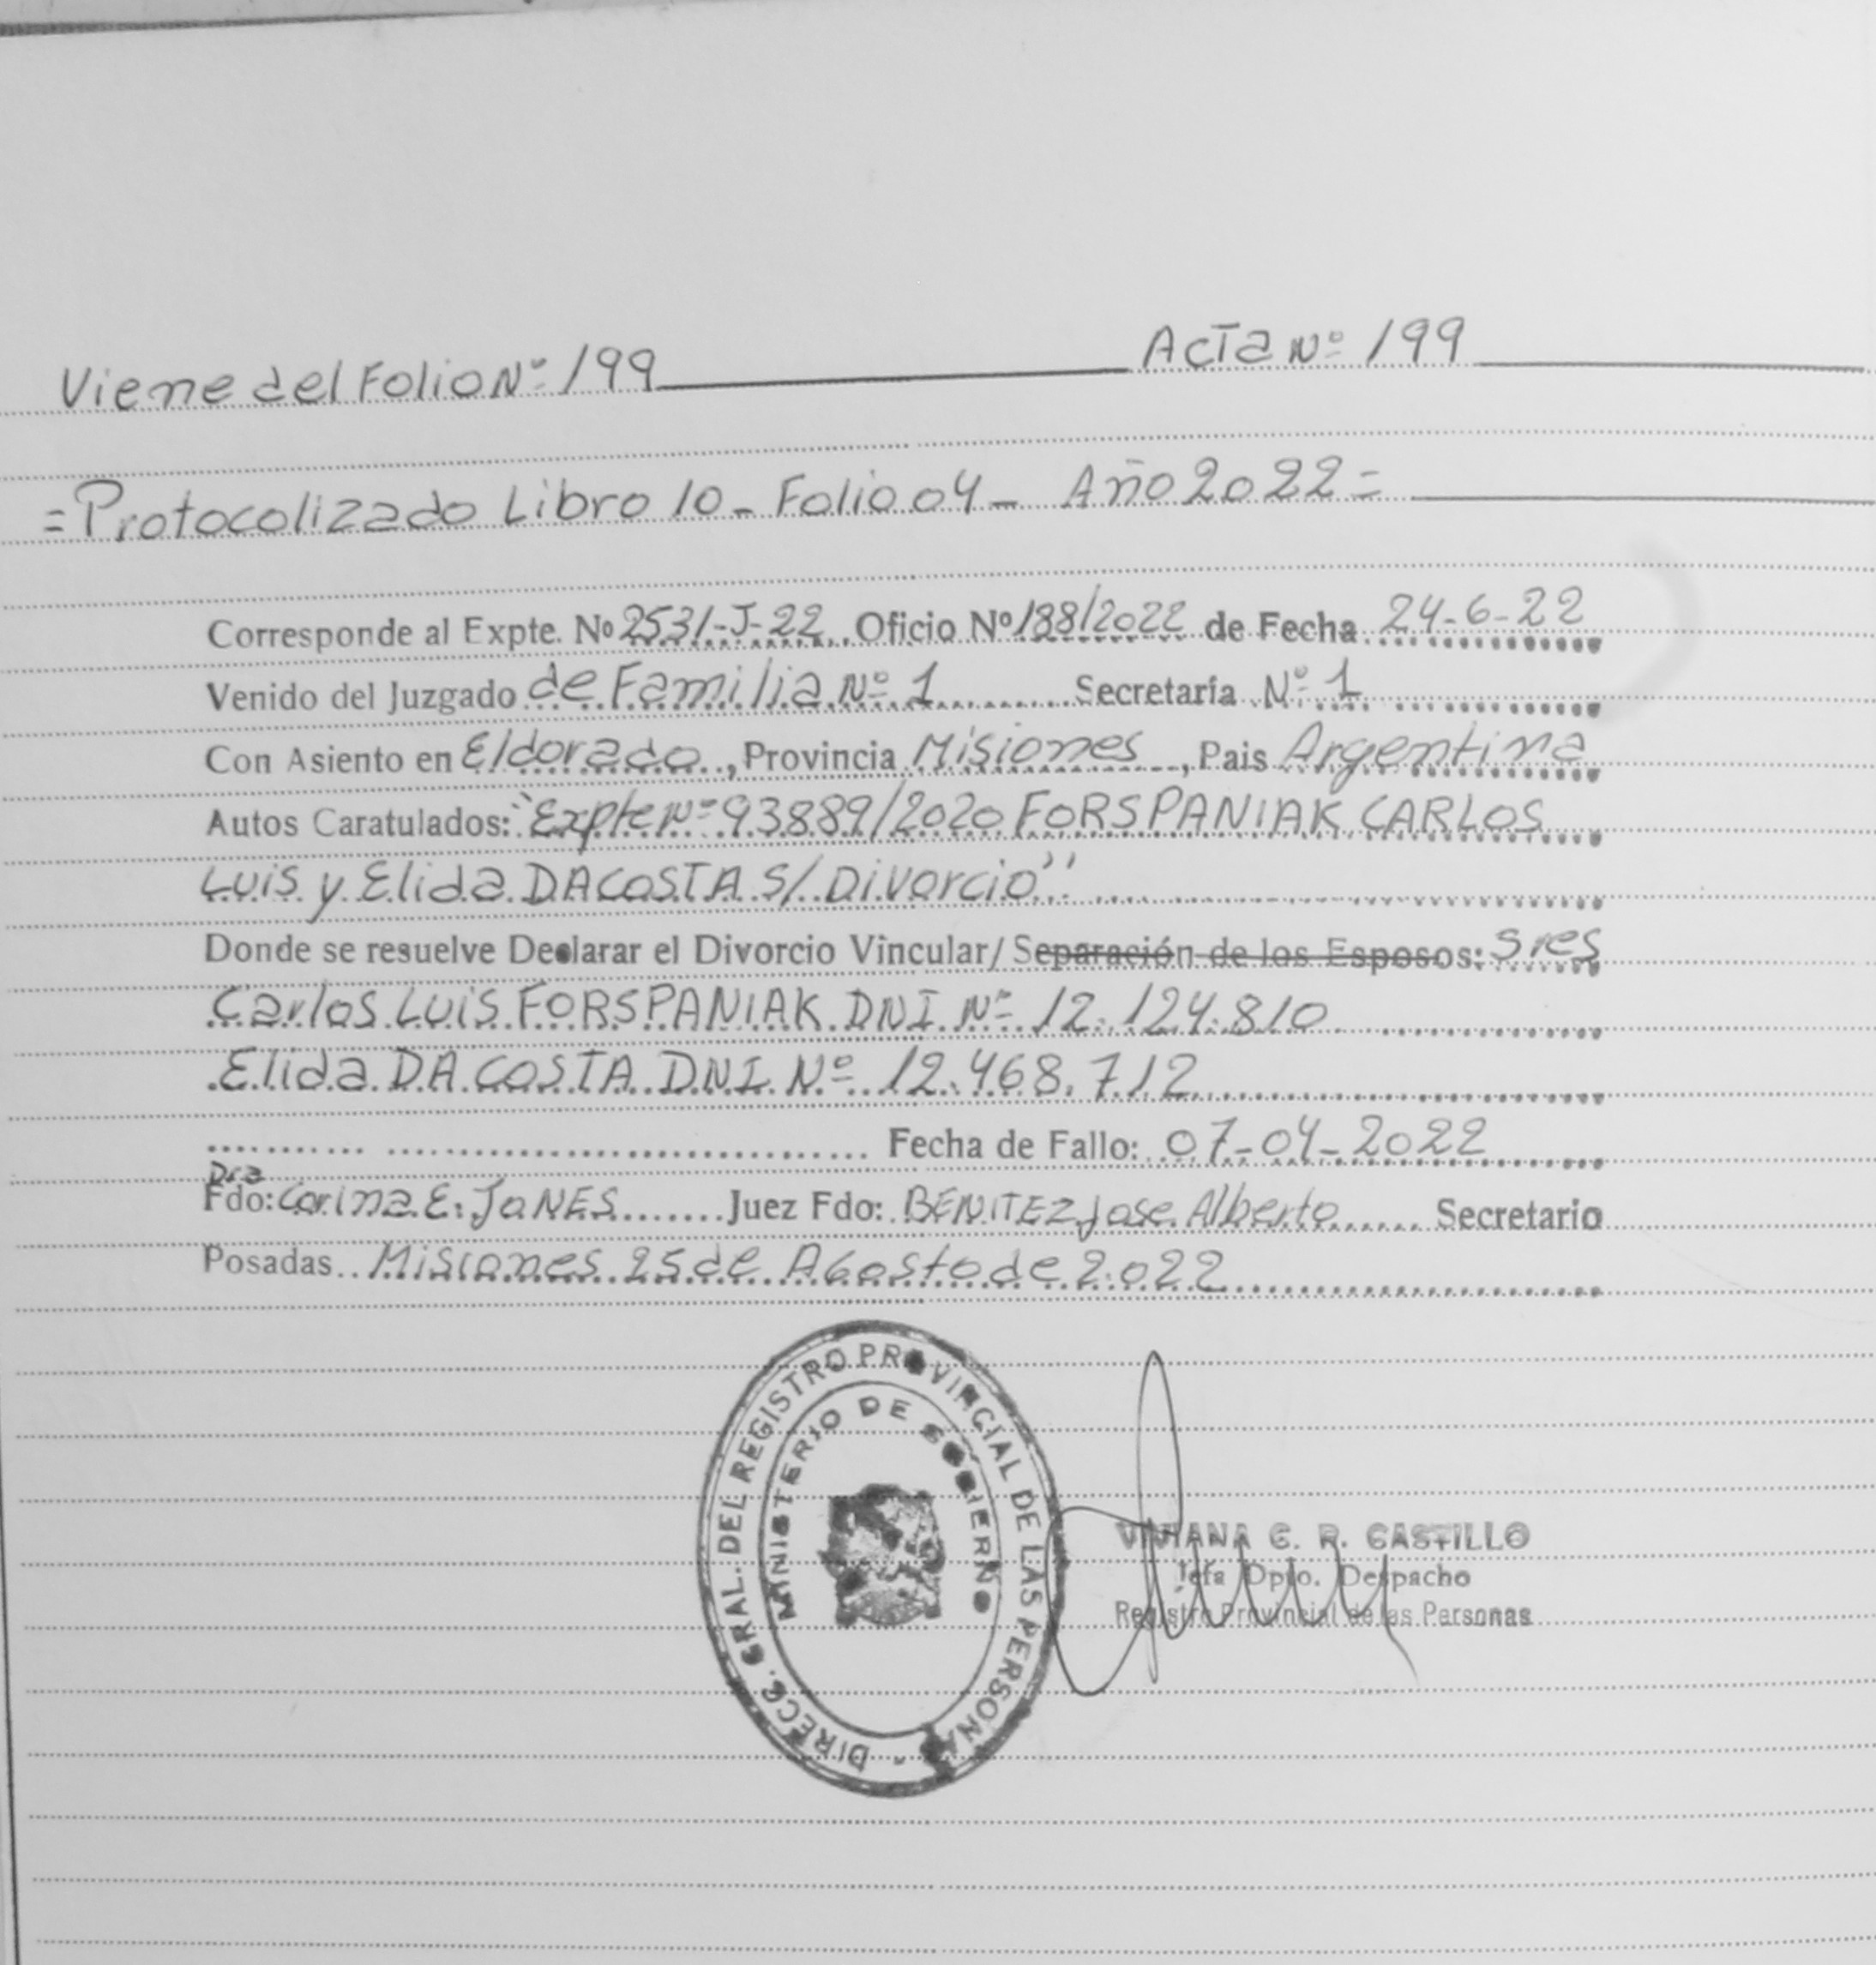 Viene del Folio Nº 199 Acta Nº 199
= Protocolizado Libro 10 - Folio 04 - Año 2022 =
Corresponde al Expte. Nº 2531-J-22 Oficio Nº 188/2022 de Fecha 24-6-22
Venido del Juzgado de Familia Nº 1 Secretaría Nº 1
Con Asiento en Eldorado, Provincia Misiones, Pais Argentina
Autos Caratulados: "Expte Nº 93889/2020 FORSPANIAK CARLOS
Luis y Elida DACOSTA S/ Divorcio"
Donde se resuelve Declarar el Divorcio Vincular/ Separación de los Esposos: Sres
Carlos Luis FORSPANIAK DNI Nº 12.124.810
Elida DA COSTA DNI Nº 12.468.712
Fecha de Fallo: 07-04-2022
Dra
Fdo: Corina E. JONES Juez Fdo: BENITEZ Jose Alberto Secretario
Posadas Misiones 25 de Agosto de 2022
DIRECC. GRAL. DEL REGISTRO PROVINCIAL DE LAS PERSONAS -
MINISTERIO DE GOBIERNO
VIVIANA G. R. CASTILLO
Jefa Dpto. Despacho
Registro Provincial de las Personas